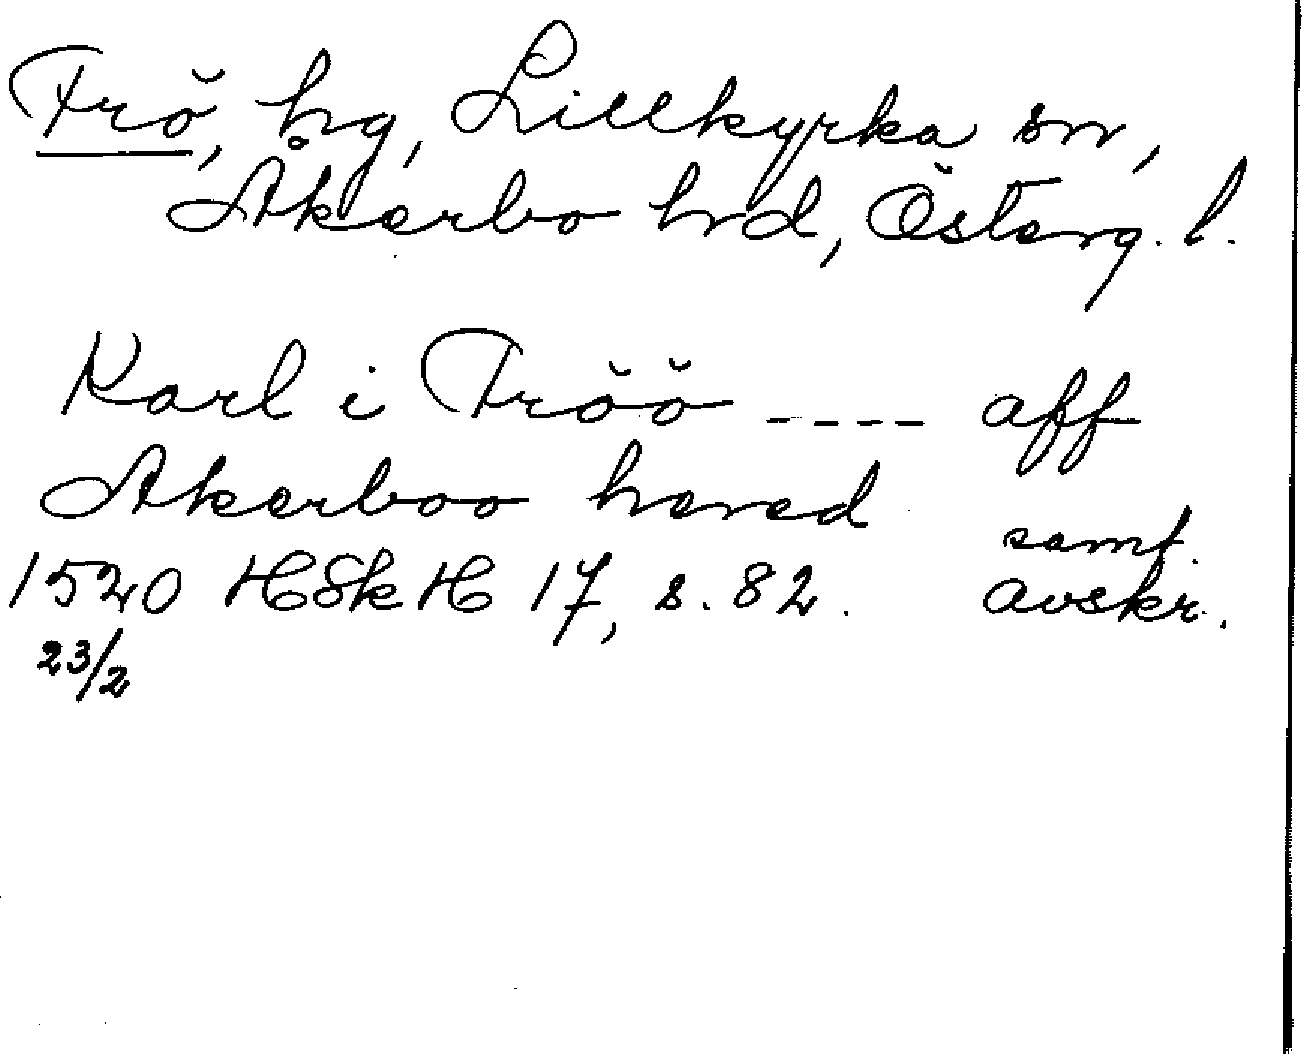 Frö, hg, Lillkyrka sn,
Åkerbo hrd, Österg. l.
Karl i Fröö ---- aff
Akerboo hered
samt.
1520 HSkH 17, s. 82. avskr.
23/2